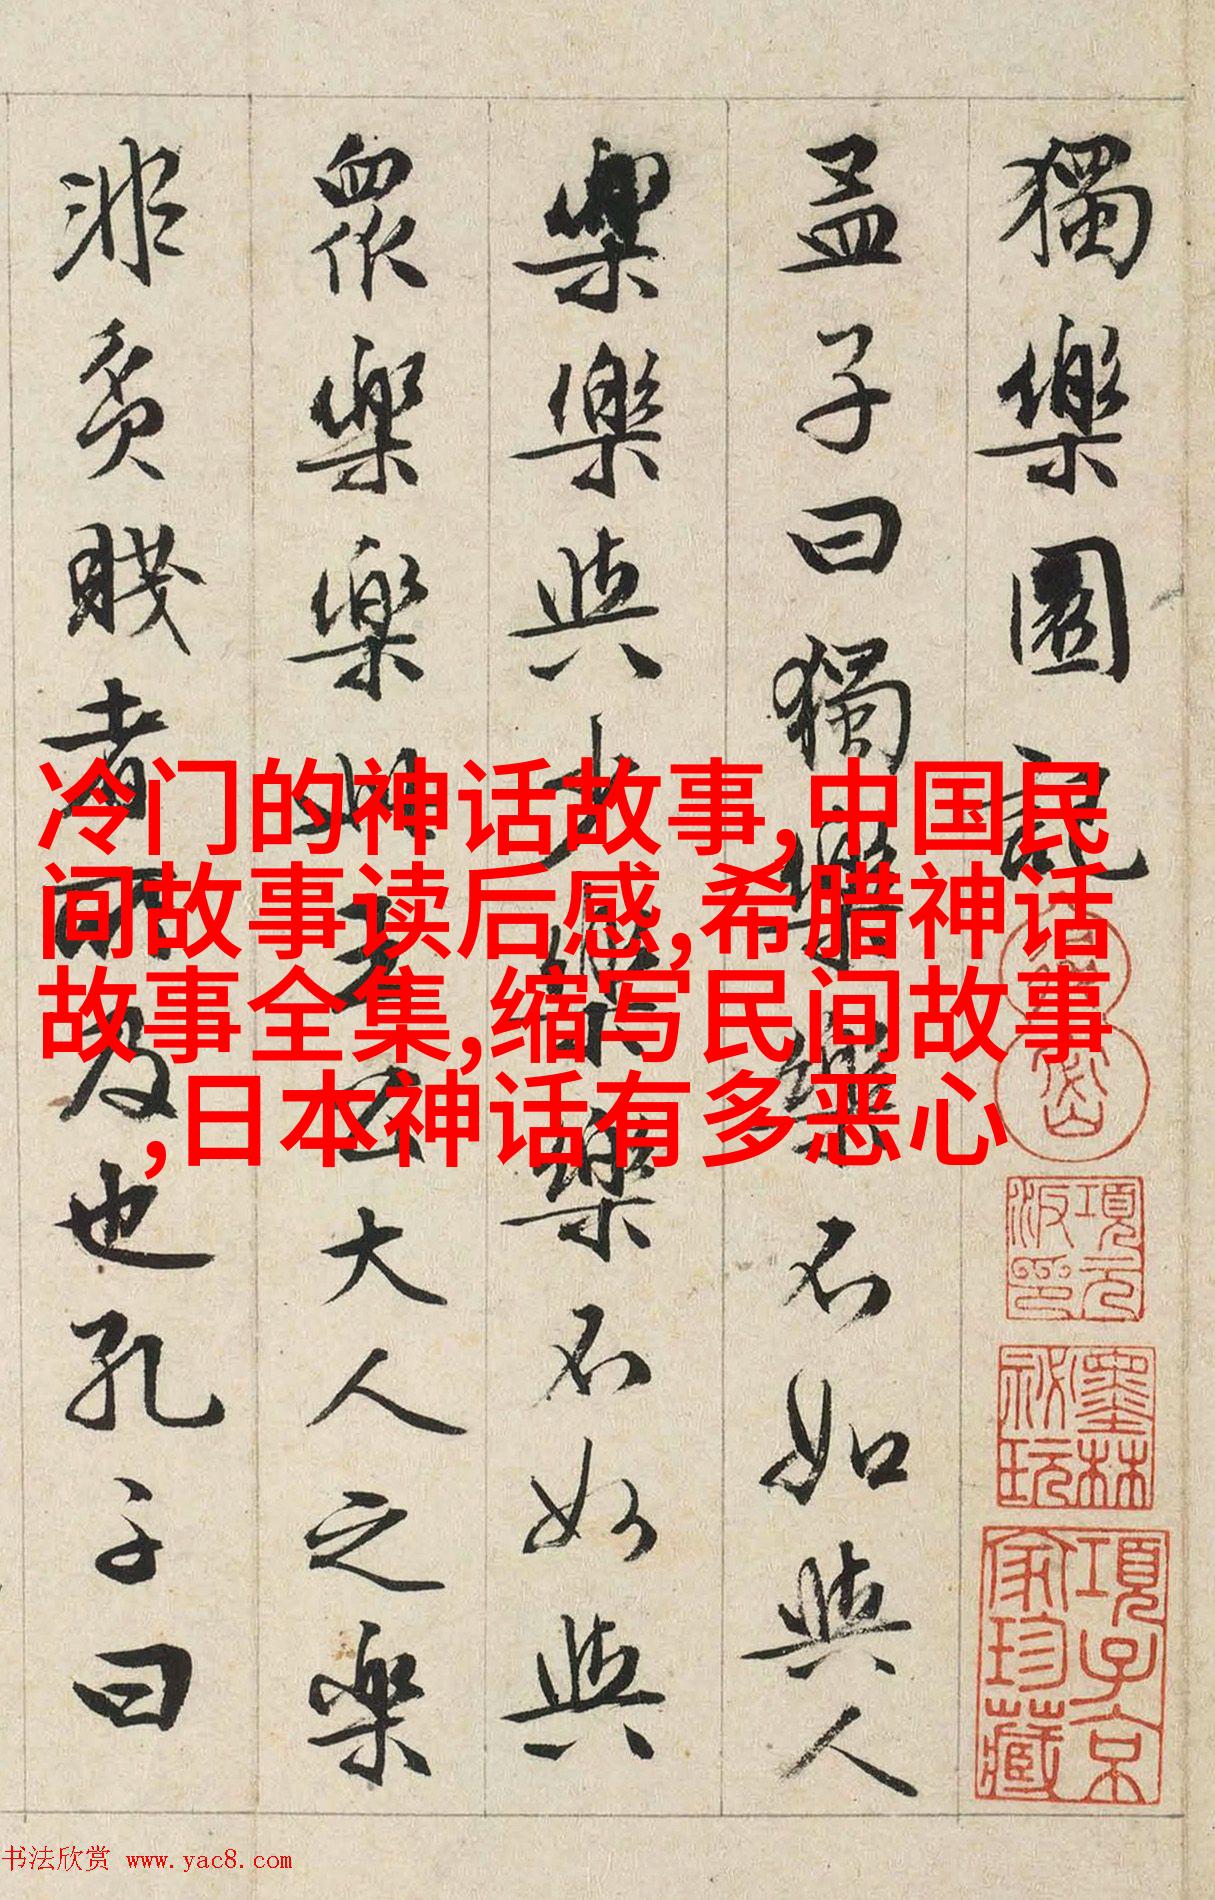 獨樂園記
孟子曰獨樂樂不如與人
樂樂與少樂樂不如與
衆樂樂此王公大人之樂
非貧賤者所及也孔子曰
冷门的神话故事,中国民
间故事读后感,希腊神话
故事全集,缩写民间故事
,日本神话有多恶心
項元
汴印
墨林
祕玩
項子京
家珍藏
书法欣赏 www.yac8.com